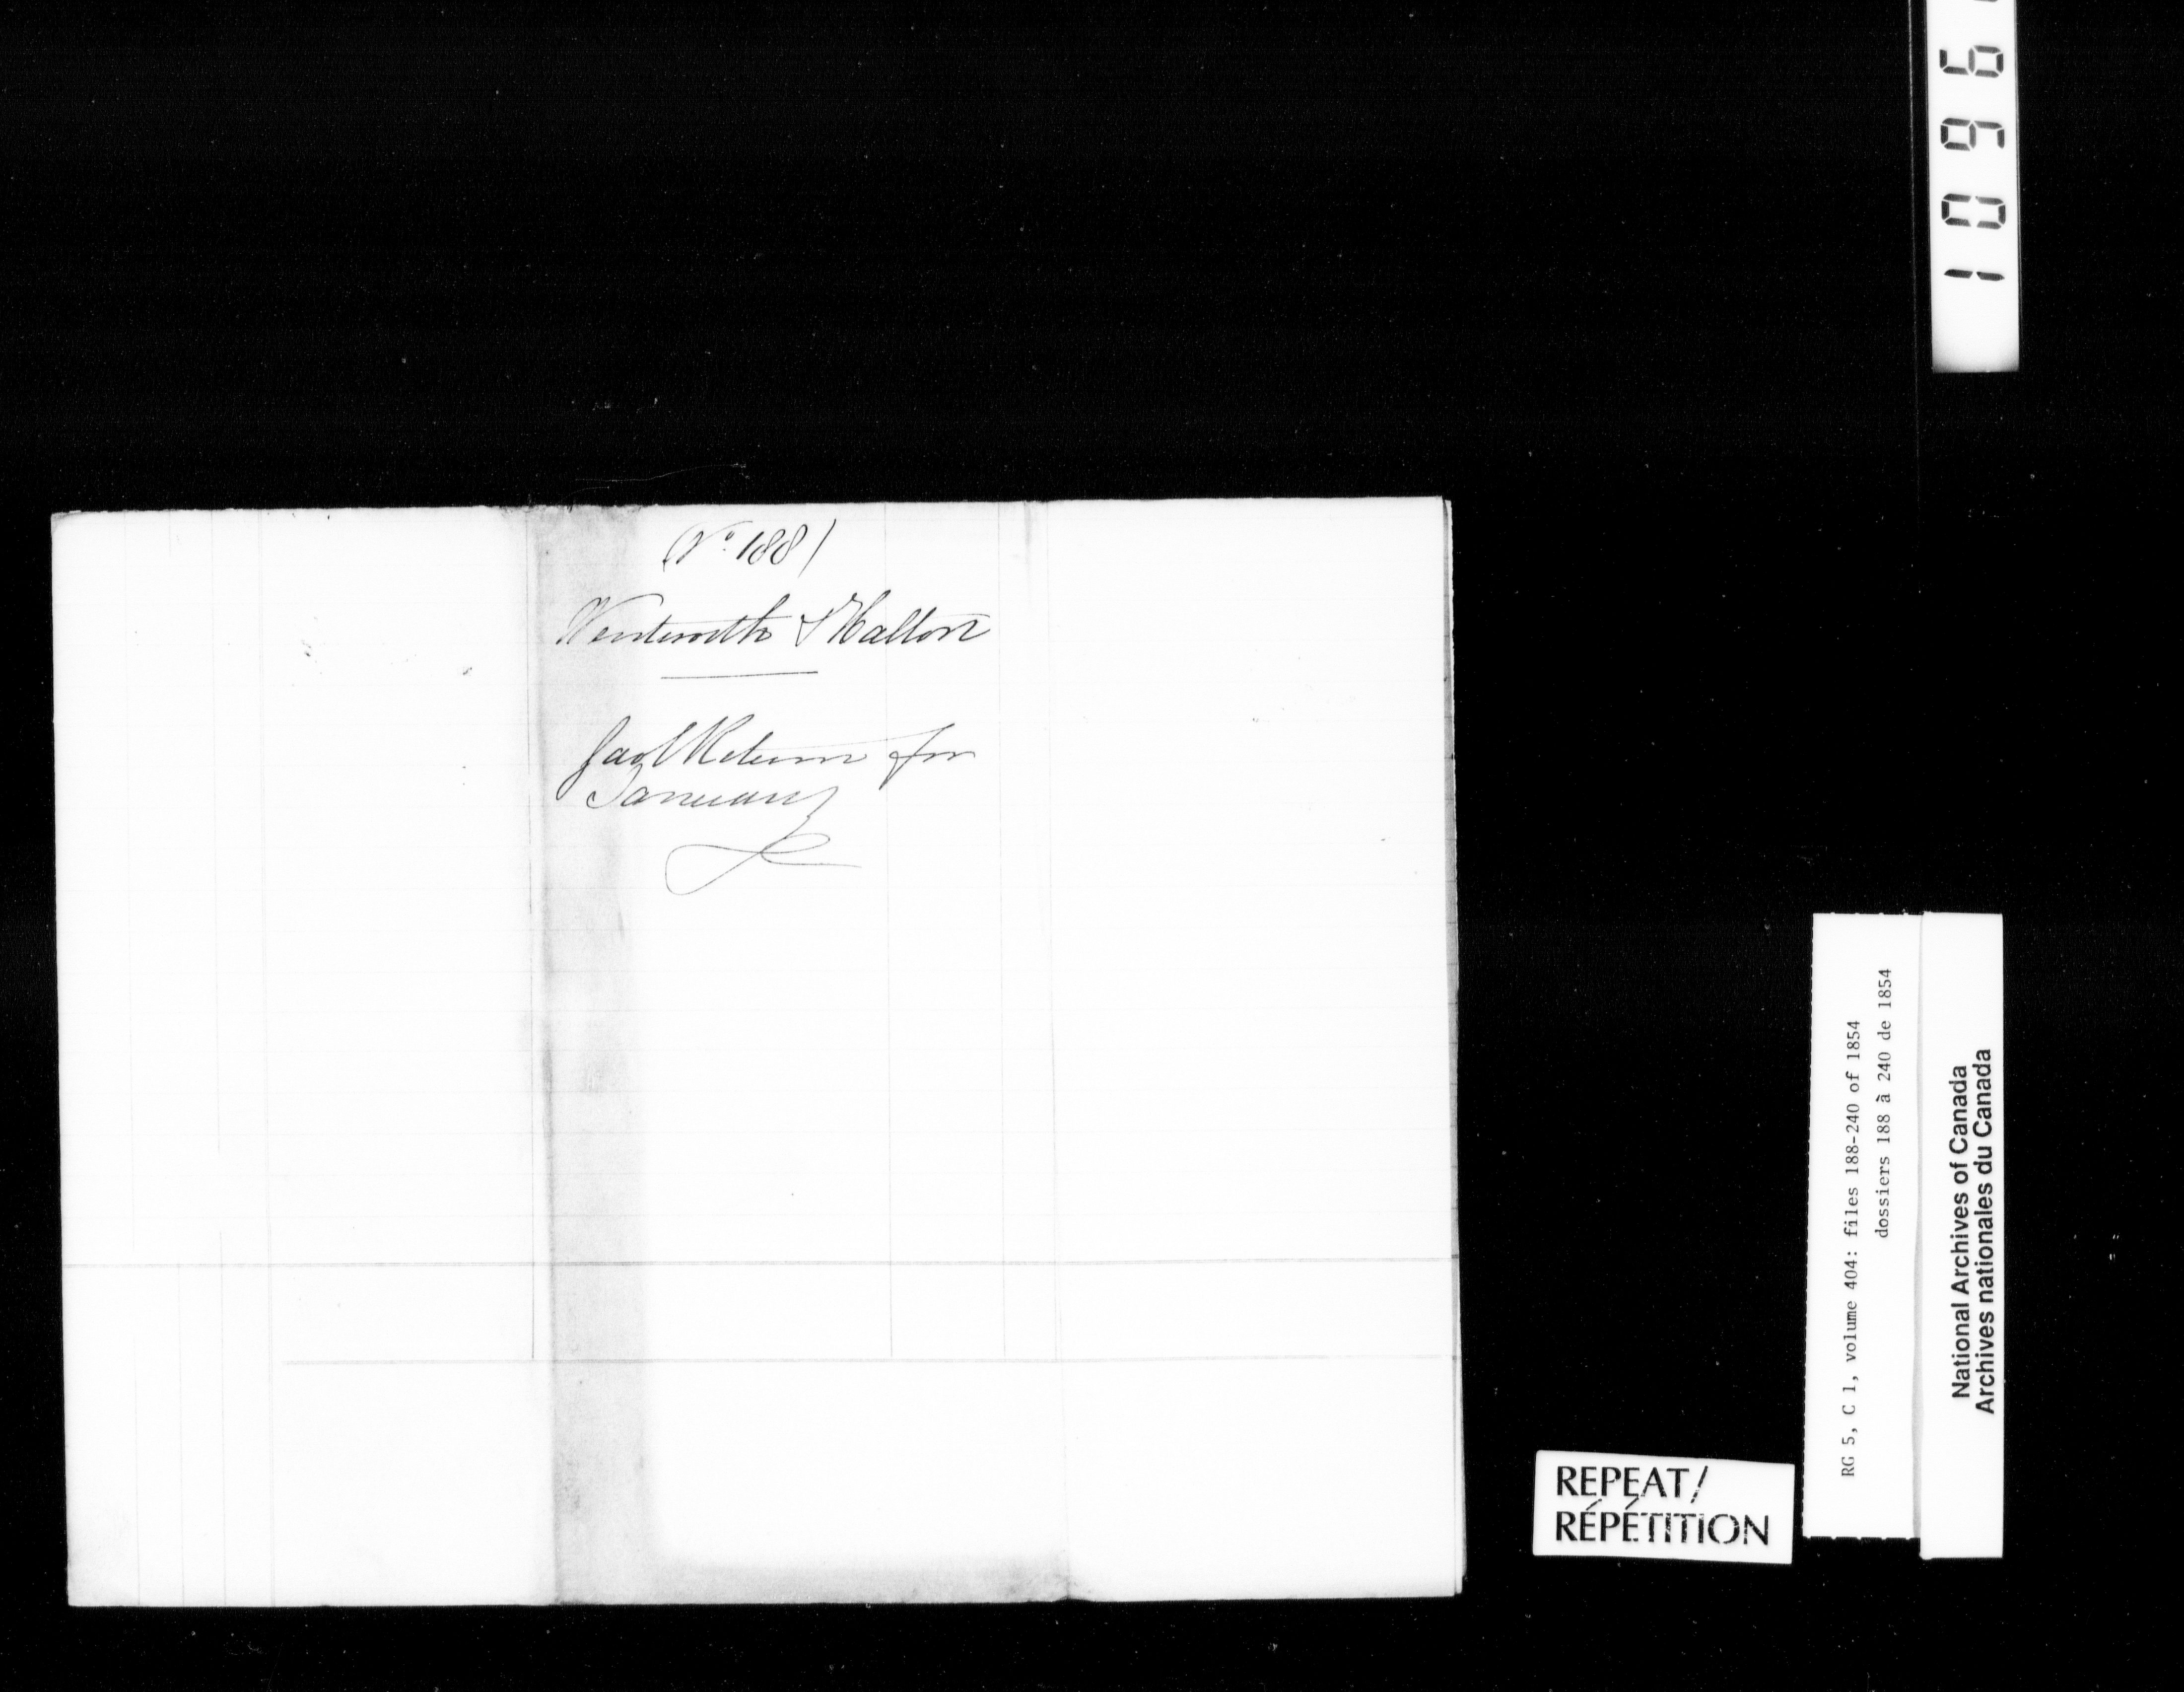 (No. 188)
Wentworth & Halton
Gaol Return for
January
1096
RG 5, C 1, volume 404: files 188-240 of 1854
dossiers 188 à 240 de 1854
National Archives of Canada
Archives nationales du Canada
REPEAT/
RÉPÉTITION